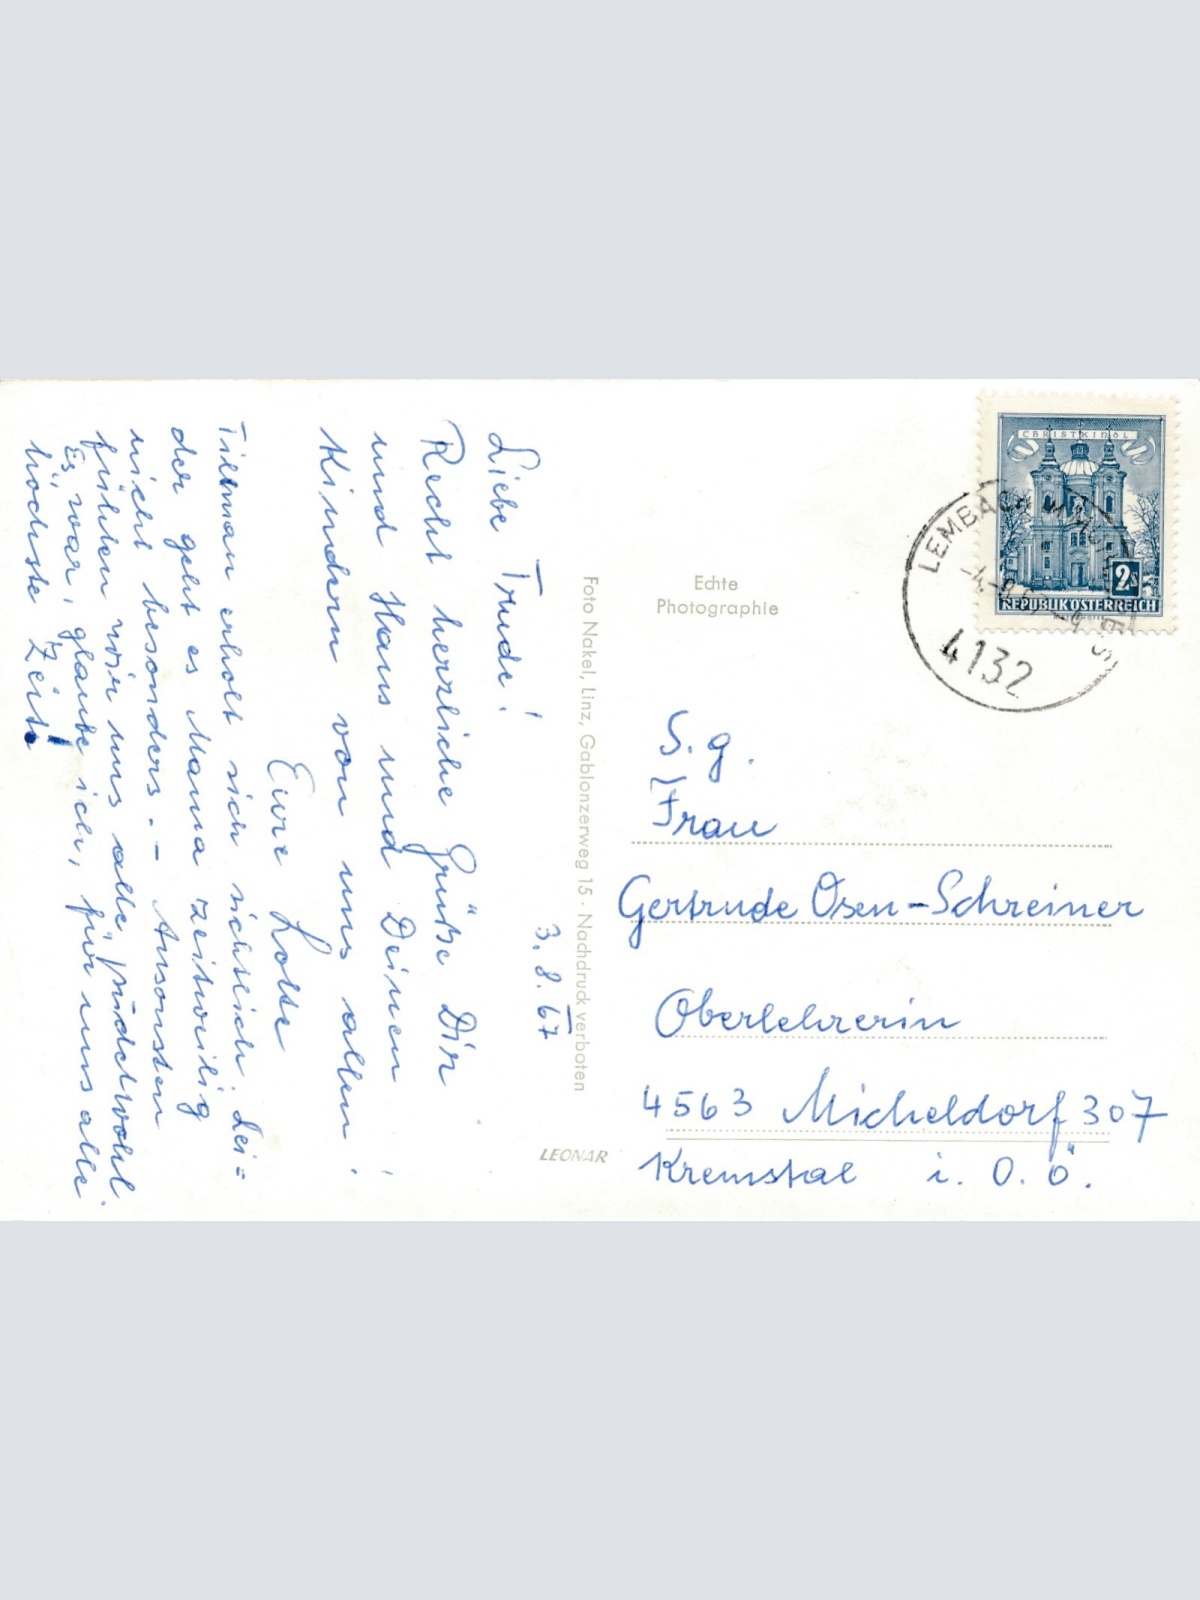 3. 8. 67
Liebe Trude!
Recht herzliche Grüße Dir
und Hans und Deinen
Kindern von uns allen!
Eure Lotte
Tillman erholt sich sichtlich. Lei=
der geht es Mama zeitweilig
nicht besonders. - Ansonsten
fühlen wir uns alle pudelwohl.
Es war, glaube ich, für uns alle
höchste Zeit!
Foto Nakel, Linz, Gablonzerweg 15 · Nachdruck verboten
LEONAR
Echte
Photographie
CHRISTKINDL
2s
REPUBLIK ÖSTERREICH
LEMBACH
4132
S. g.
Frau
Gertrude Osen-Schreiner
Oberlehrerin
4563 Micheldorf 307
Kremstal i. O. Ö.